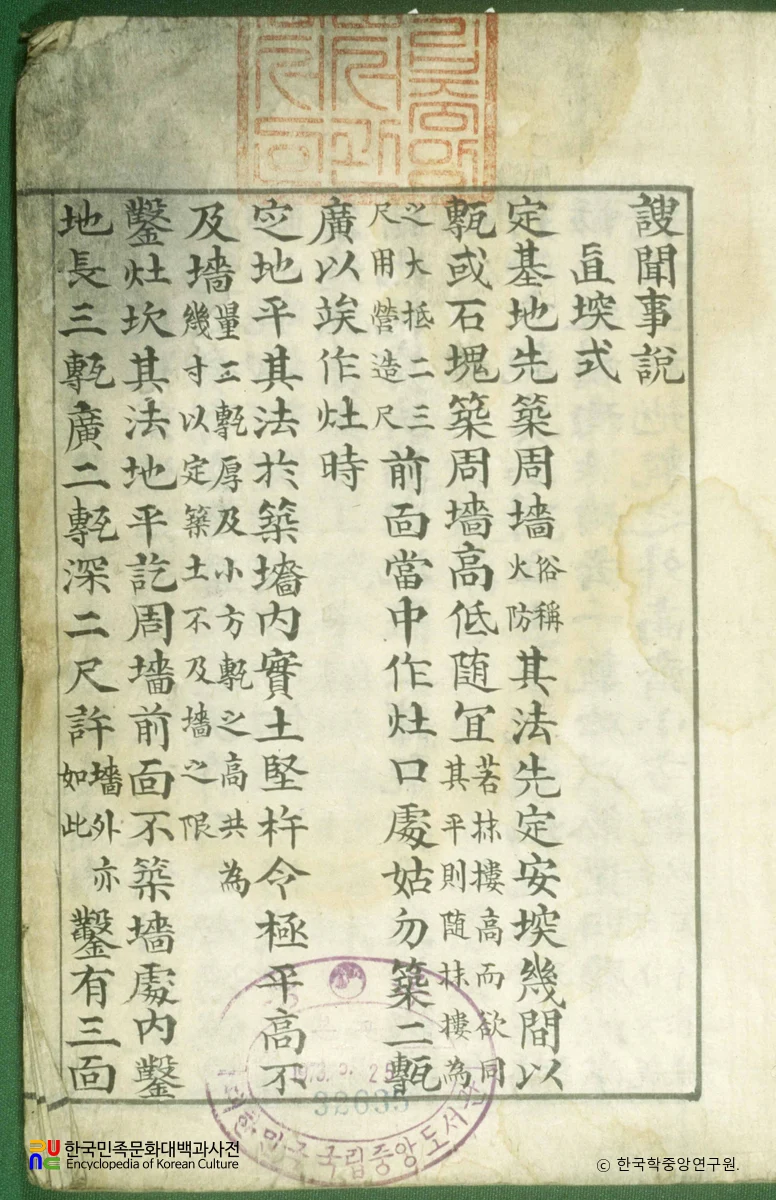 謏聞事說
直堗式
定基地先築周墻俗稱火防其法先定安堗幾間以
甎或石塊築周墻高低隨宜若抹樓高而欲同其平則隨抹樓為
之大抵二三尺用營造尺前面當中作灶口處姑勿築二甎
廣以竢作灶時
定地平其法於築墻內實土堅杵令極平高不
及墻量三甎厚及小方甎之高共為幾寸以定築土不及墻之限
鑿灶坎其法地平訖周墻前面不築墻處內鑿
地長三甎廣二甎深二尺許墻外亦如此鑿有三面
32635
국립중앙도서관
한국민족문화대백과사전
Encyclopedia of Korean Culture
© 한국학중앙연구원.